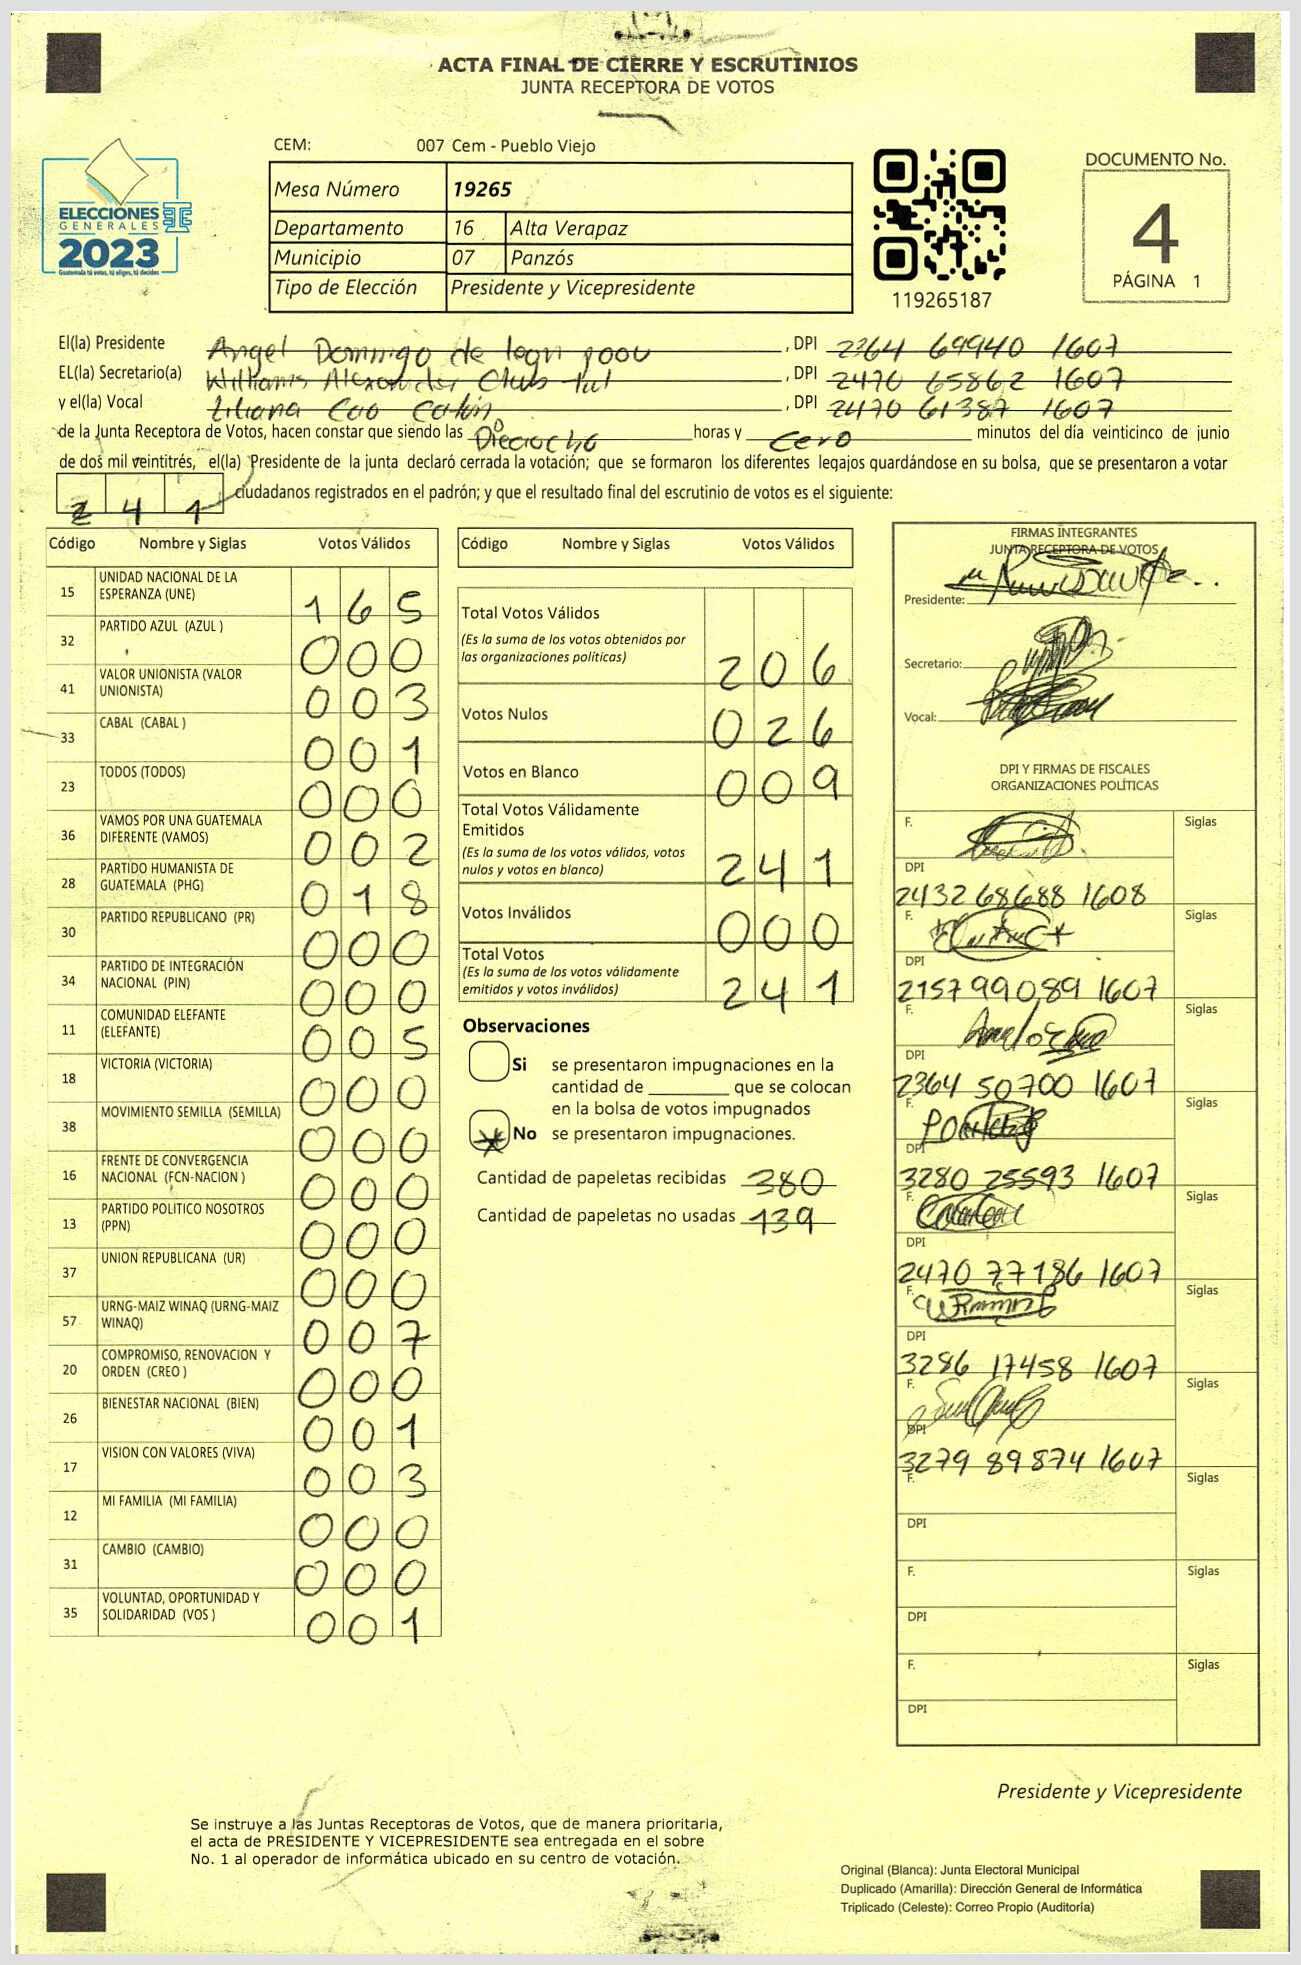 ACTA FINAL DE CIERRE Y ESCRUTINIOS
JUNTA RECEPTORA DE VOTOS
ELECCIONES
GENERALES
2023
Guatemala tú votas, tú eliges, tú decides
CEM: 007 Cem - Pueblo Viejo
Mesa Número 19265
Departamento 16 Alta Verapaz
Municipio 07 Panzós
Tipo de Elección Presidente y Vicepresidente
119265187
DOCUMENTO No.
4
PÁGINA 1
El(la) Presidente Angel Domingo de leon , DPI 2364 69940 1607
EL(la) Secretario(a) Williams Alexander , DPI 2470 65862 1607
y el(la) Vocal Liliana Cao , DPI 2470 61387 1607
de la Junta Receptora de Votos, hacen constar que siendo las Dieciocho horas y cero minutos del día veinticinco de junio
de dos mil veintitrés, el(la) Presidente de la junta declaró cerrada la votación; que se formaron los diferentes legajos guardándose en su bolsa, que se presentaron a votar
241 ciudadanos registrados en el padrón; y que el resultado final del escrutinio de votos es el siguiente:
Código Nombre y Siglas Votos Válidos
15 UNIDAD NACIONAL DE LA ESPERANZA (UNE) 165
32 PARTIDO AZUL (AZUL ) 000
41 VALOR UNIONISTA (VALOR UNIONISTA) 003
33 CABAL (CABAL ) 001
23 TODOS (TODOS) 000
36 VAMOS POR UNA GUATEMALA DIFERENTE (VAMOS) 002
28 PARTIDO HUMANISTA DE GUATEMALA (PHG) 018
30 PARTIDO REPUBLICANO (PR) 000
34 PARTIDO DE INTEGRACIÓN NACIONAL (PIN) 000
11 COMUNIDAD ELEFANTE (ELEFANTE) 005
18 VICTORIA (VICTORIA) 000
38 MOVIMIENTO SEMILLA (SEMILLA) 000
16 FRENTE DE CONVERGENCIA NACIONAL (FCN-NACION ) 000
13 PARTIDO POLITICO NOSOTROS (PPN) 000
37 UNION REPUBLICANA (UR) 000
57 URNG-MAIZ WINAQ (URNG-MAIZ WINAQ) 007
20 COMPROMISO, RENOVACION Y ORDEN (CREO ) 000
26 BIENESTAR NACIONAL (BIEN) 001
17 VISION CON VALORES (VIVA) 003
12 MI FAMILIA (MI FAMILIA) 000
31 CAMBIO (CAMBIO) 000
35 VOLUNTAD, OPORTUNIDAD Y SOLIDARIDAD (VOS ) 001
Código Nombre y Siglas Votos Válidos
Total Votos Válidos
(Es la suma de los votos obtenidos por
las organizaciones políticas) 206
Votos Nulos 026
Votos en Blanco 009
Total Votos Válidamente
Emitidos
(Es la suma de los votos válidos, votos
nulos y votos en blanco) 241
Votos Inválidos 000
Total Votos
(Es la suma de los votos válidamente
emitidos y votos inválidos) 241
Observaciones
Si se presentaron impugnaciones en la
cantidad de ________ que se colocan
en la bolsa de votos impugnados
No se presentaron impugnaciones.
Cantidad de papeletas recibidas 380
Cantidad de papeletas no usadas 139
FIRMAS INTEGRANTES
JUNTA RECEPTORA DE VOTOS
Presidente:
Secretario:
Vocal:
DPI Y FIRMAS DE FISCALES
ORGANIZACIONES POLÍTICAS
F. Siglas
DPI
2432 68688 1608
F. Siglas
DPI
2157 99089 1607
F. Siglas
DPI
2364 50700 1607
F. Siglas
DPI
3280 25593 1607
F. Siglas
DPI
2470 77186 1607
F. Siglas
DPI
3286 17458 1607
F. Siglas
DPI
3279 89874 1607
F. Siglas
DPI
F. Siglas
DPI
F. Siglas
DPI
Presidente y Vicepresidente
Se instruye a las Juntas Receptoras de Votos, que de manera prioritaria,
el acta de PRESIDENTE Y VICEPRESIDENTE sea entregada en el sobre
No. 1 al operador de informática ubicado en su centro de votación.
Original (Blanca): Junta Electoral Municipal
Duplicado (Amarilla): Dirección General de Informática
Triplicado (Celeste): Correo Propio (Auditoría)